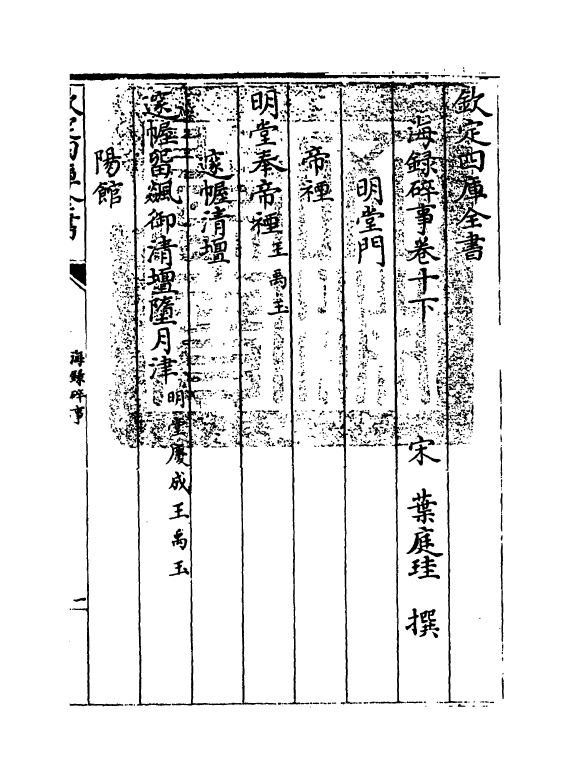 欽定四庫全書
海錄碎事卷十下
宋 葉庭珪 撰
明堂門
帝種
明堂奉帝種王禹玉
邃幄清壇
邃幄留飆御清壇墮月津明堂慶成王禹玉
陽館
海錄碎事
一